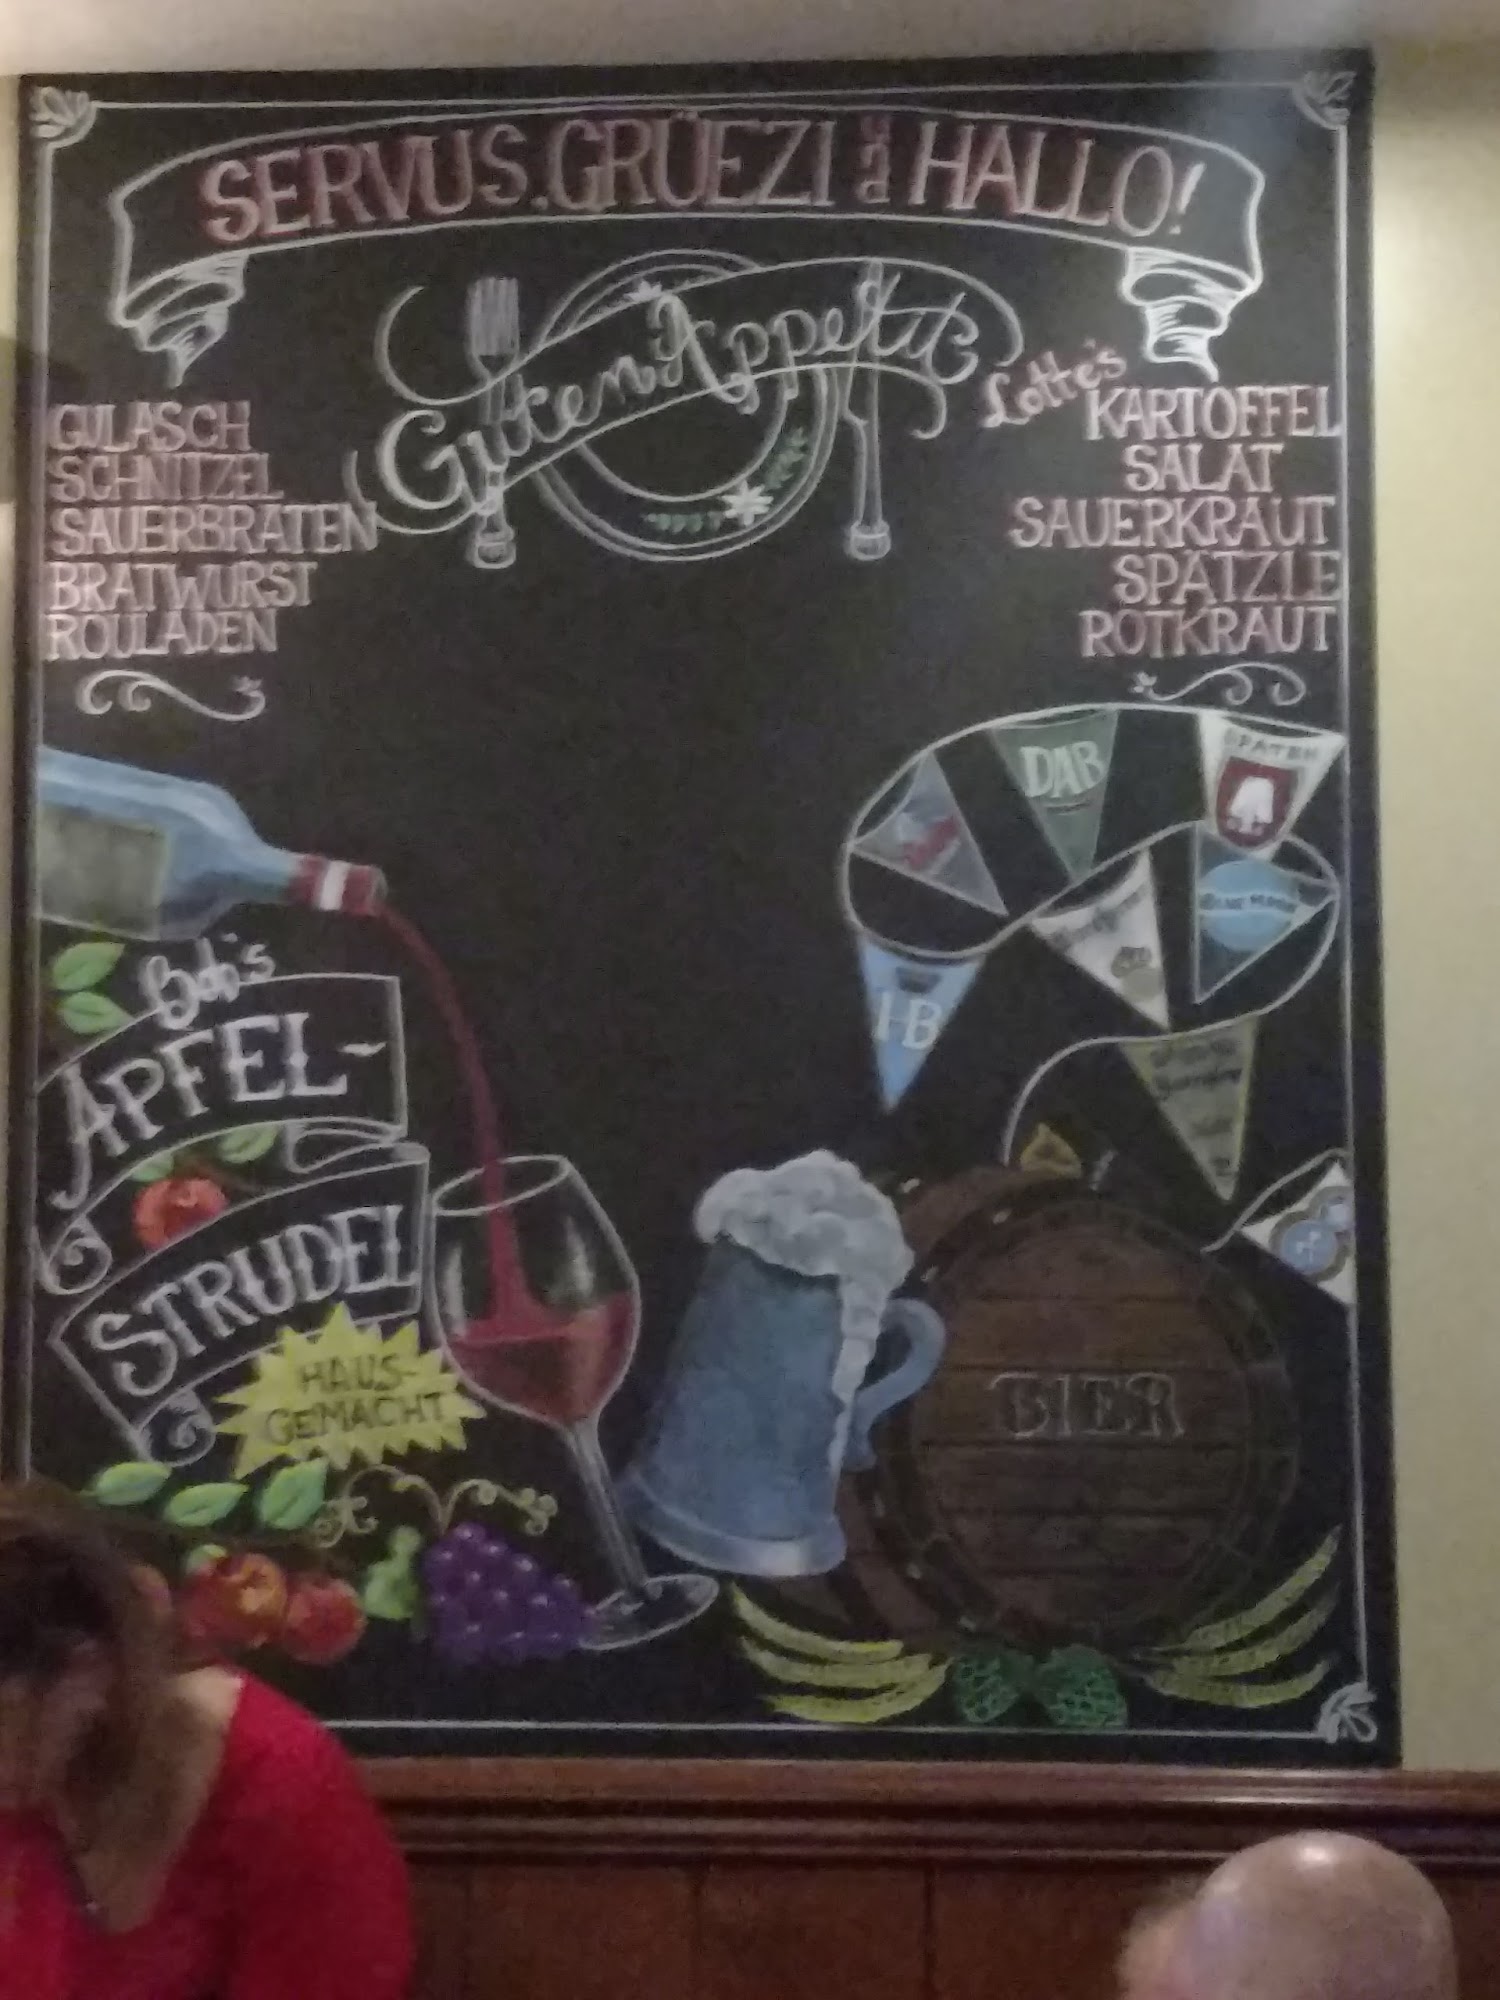 SERVUS, GRÜEZI und HALLO!
Guten Appetit
GULASCH
SCHNITZEL
SAUERBRATEN
BRATWURST
ROULADEN
Lotte's
KARTOFFEL
SALAT
SAUERKRAUT
SPÄTZLE
ROTKRAUT
DAB
SPATEN
BLUE MOON
HB
Bob's
APFEL-
STRUDEL
HAUS-
GEMACHT
BIER